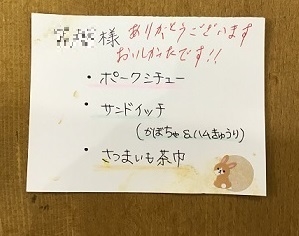 様 ありがとうございます
おいしかったです!!
・ポークシチュー
・サンドイッチ
(かぼちゃ&ハムきゅうり)
・さつまいも茶巾